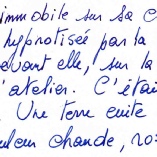 immobile sur sa c
hypnotisée par la
evant elle, sur la
l'atelier. C'étai
Une terre cuite
uleur chaude, ros